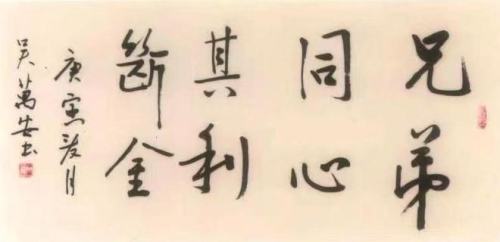 兄弟
同心
其利
斷金
庚寅 月
吴萬安书